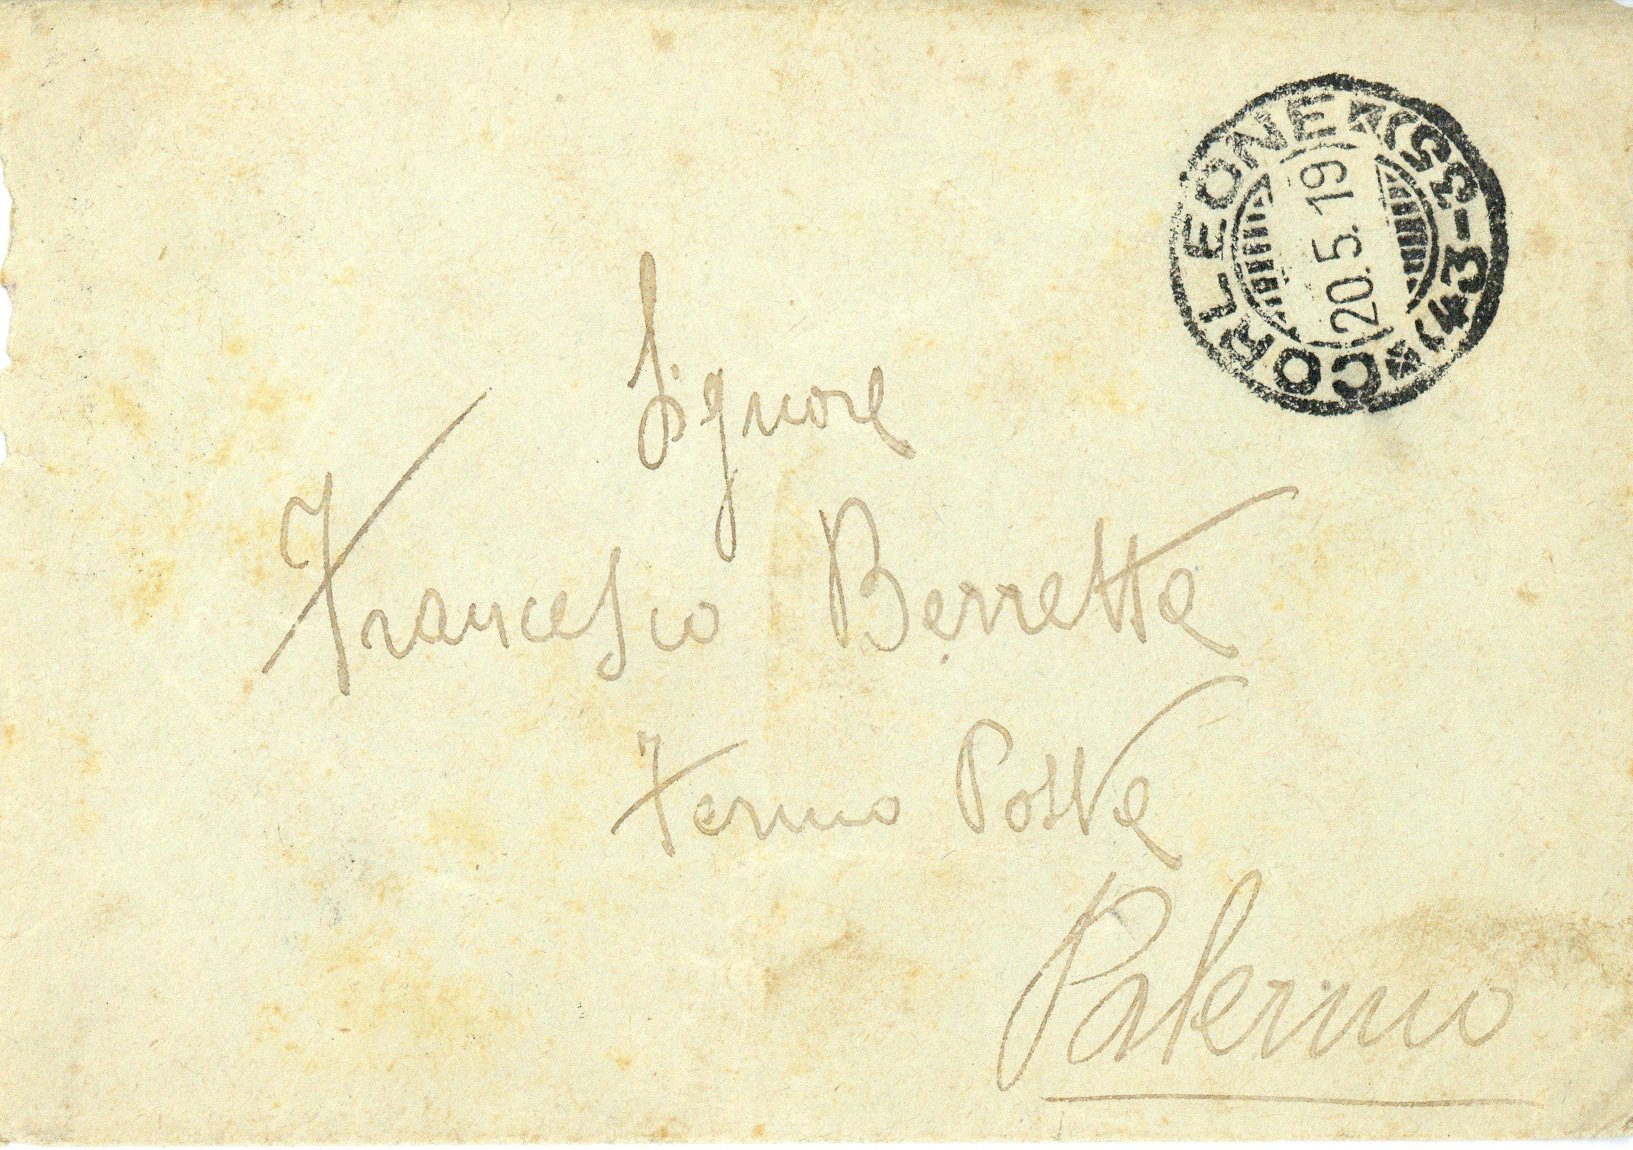 CORLEONE (43-35)
20.5.19
Signore
Francesco Berretta
Fermo Posta
Palermo